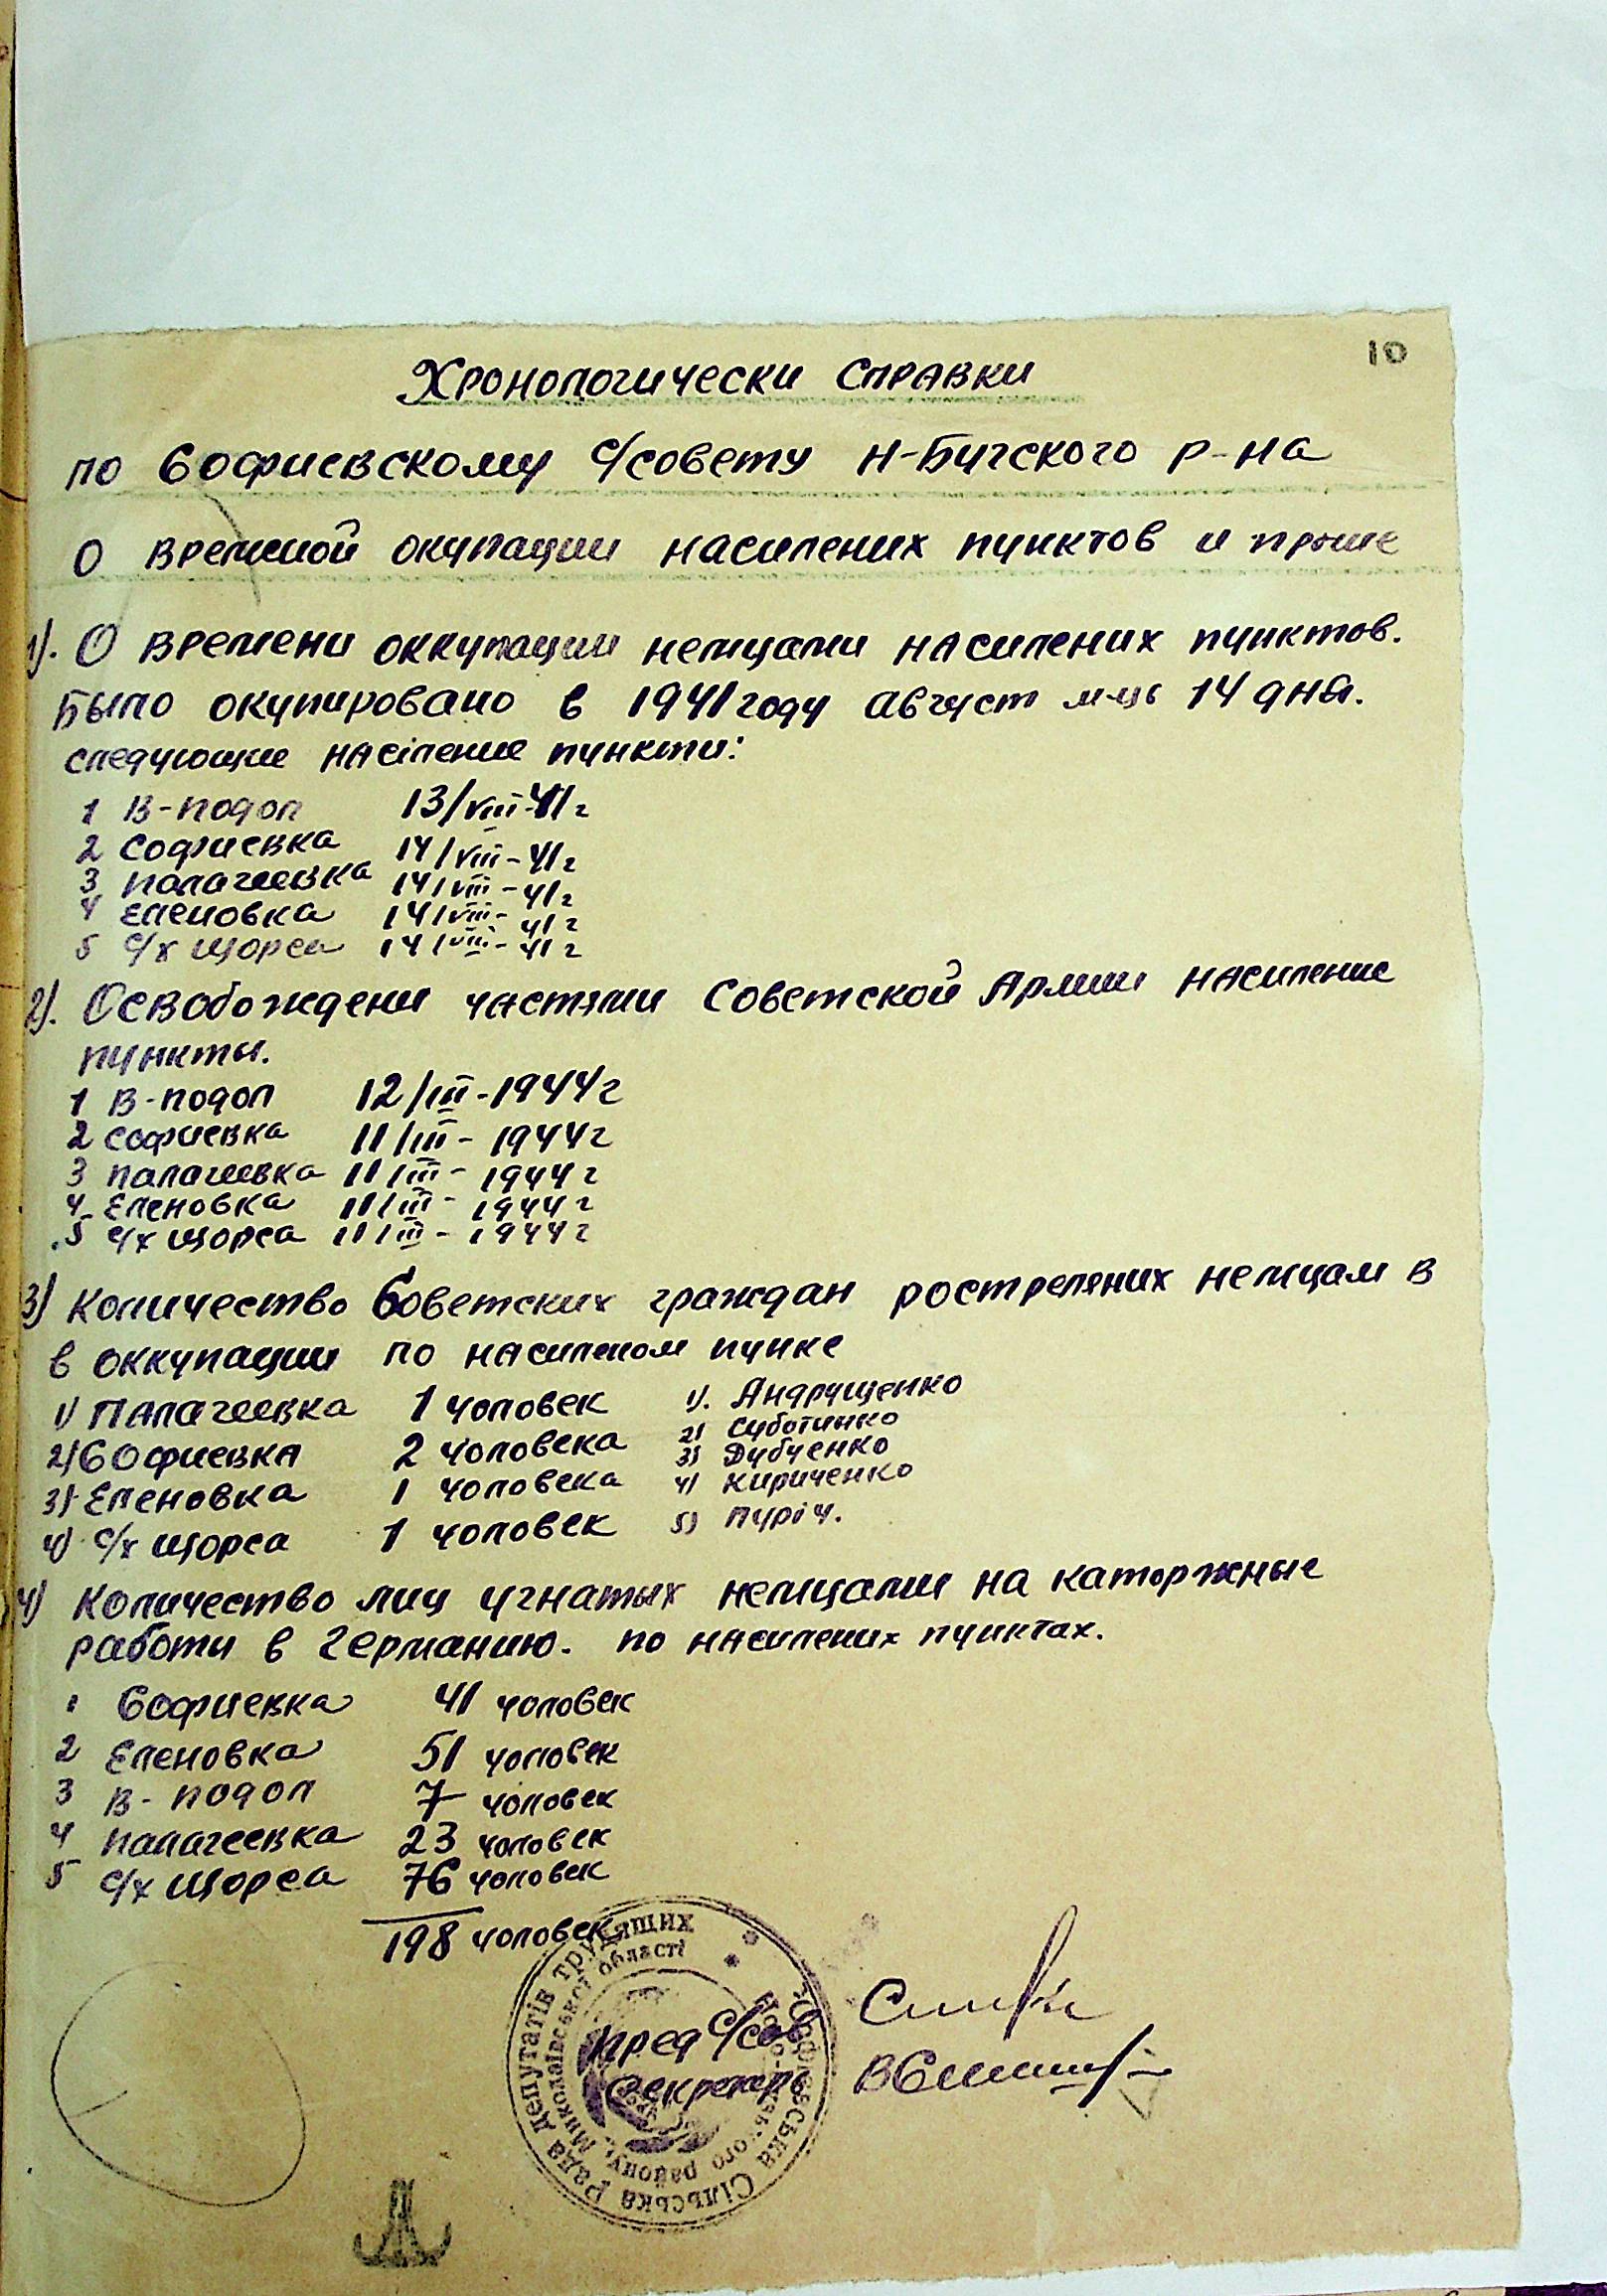 10
Хронологически справки
по Софиевскому с/совету Н-Бугского р-на
О временой окупации населених пунктов и проше
1). О времени оккупации немцами населених пунктов.
Было окупировано в 1941 году август м-ць 14 дня.
следующие насіление пункти:
1 В-подол 13/VIII-41 г
2 Софиевка 14/VIII-41 г
3 Палагеевка 14/VIII-41 г
4 Еленовка 14/VIII-41 г
5 с/х Щорса 14/VIII-41 г
2). Освобождени частями Советской Армии население
пункты.
1 В-подол 12/III-1944 г
2 Софиевка 11/III-1944 г
3 Палагеевка 11/III-1944 г
4 Еленовка 11/III-1944 г
5 с/х Щорса 11/III-1944 г
3) Количество Советских граждан ростреляних немцам в
в оккупации по населеном пунке
1) Палагеевка 1 чоловек 1). Андрущенко
2) Софиевка 2 чоловека 2) Суботинко
3) Еленовка 1 чоловека 3) Дубченко
4) с/х Щорса 1 чоловек 4) Кириченко
5) Пуріч.
4) Количество лиц угнатых немцами на каторжные
работи в Германию. по населених пунктах.
1 Софиевка 41 чоловек
2 Еленовка 51 чоловек
3 В-подол 7 чоловек
4 Палагеевка 23 чоловек
5 с/х Щорса 76 чоловек
198 чоловек
пред с/сов
Секретарь
Сільська Рада депутатів трудящих
району, Миколаївської області